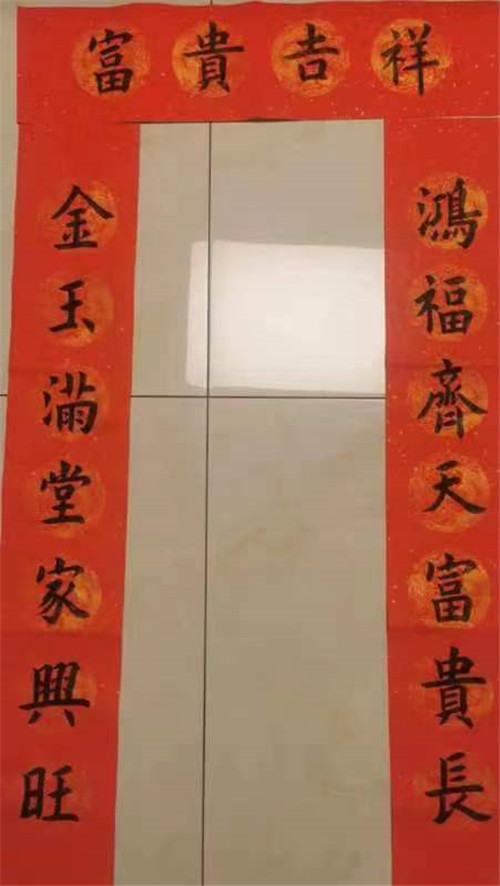 富貴吉祥
鴻福齊天富貴長
金玉滿堂家興旺